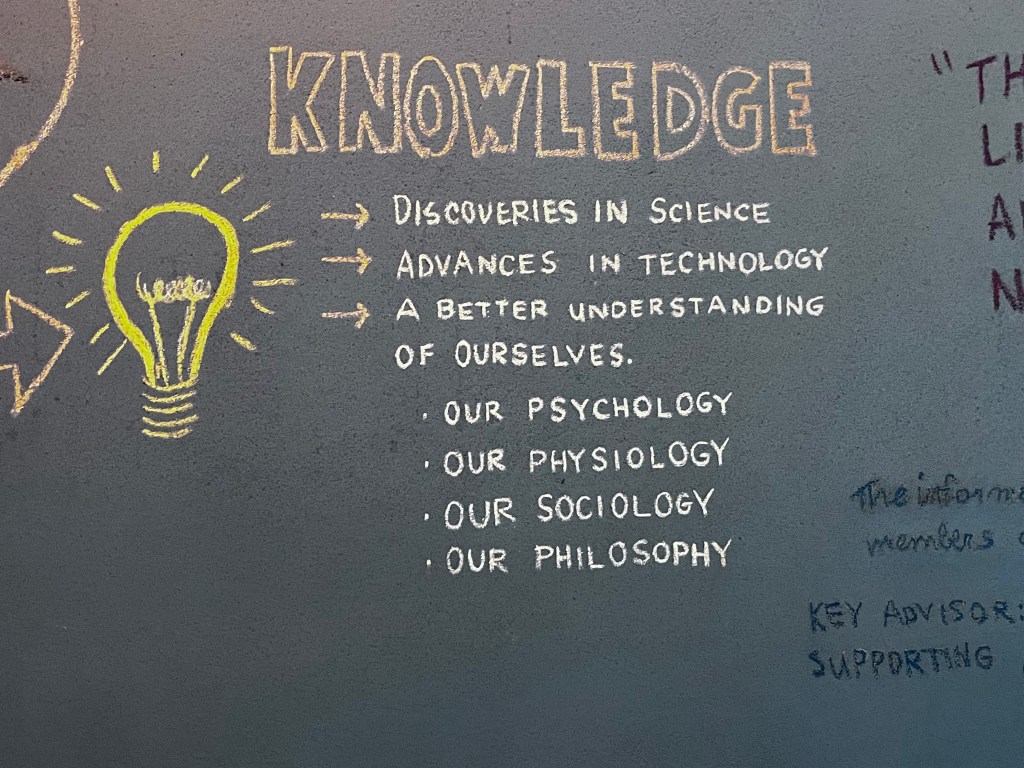 KNOWLEDGE
→ DISCOVERIES IN SCIENCE
→ ADVANCES IN TECHNOLOGY
→ A BETTER UNDERSTANDING
OF OURSELVES.
· OUR PSYCHOLOGY
· OUR PHYSIOLOGY
· OUR SOCIOLOGY
· OUR PHILOSOPHY
"TH
LI
N
The inform
members
KEY ADVISOR:
SUPPORTING